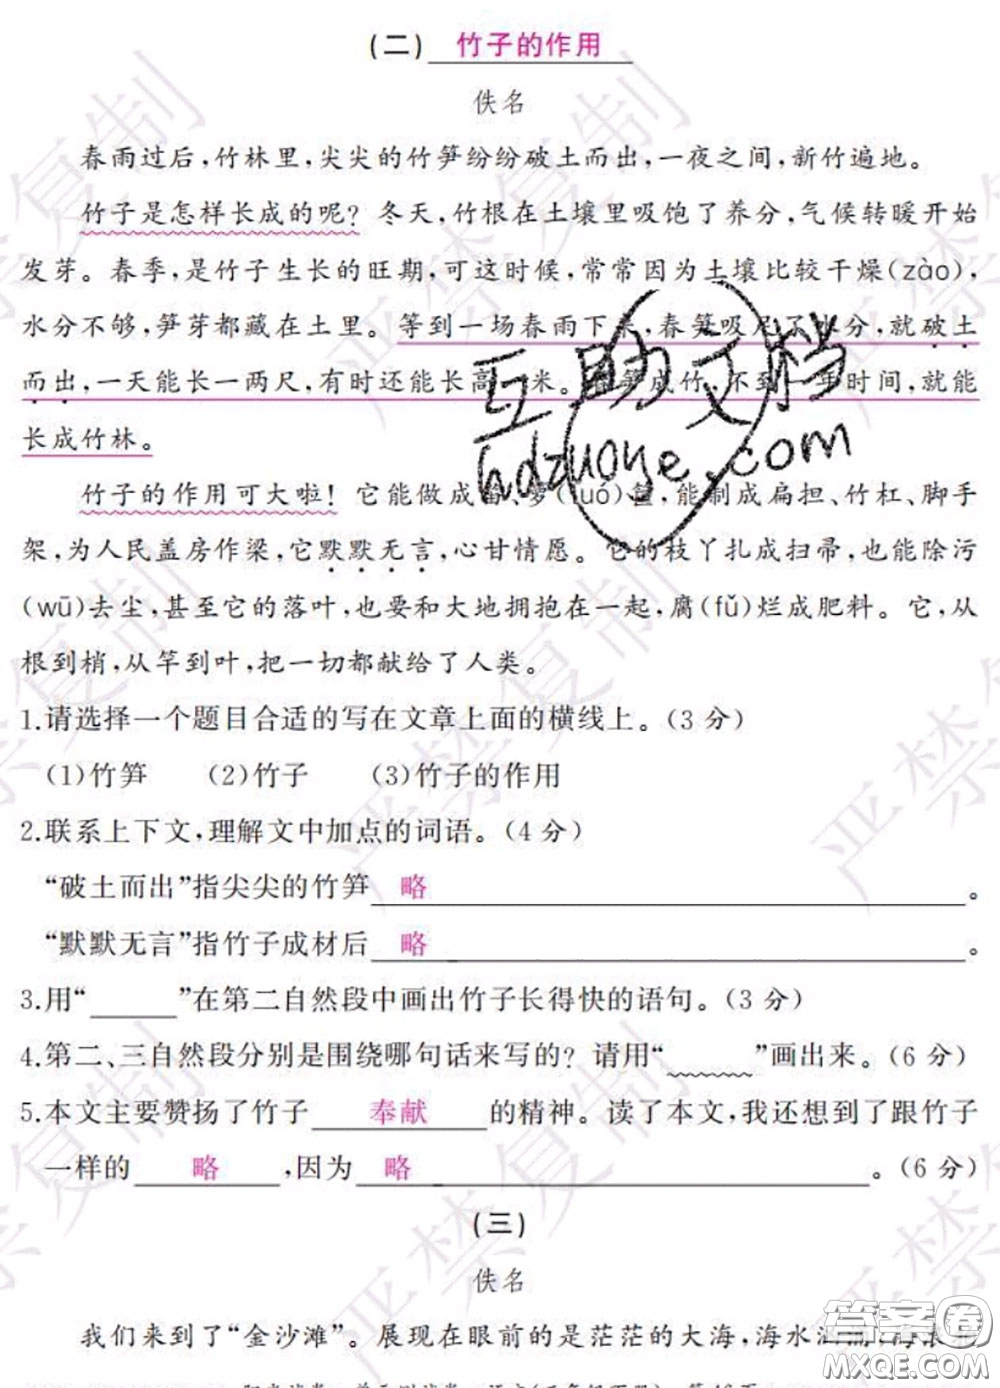 (二) 竹子的作用
佚名
春雨过后，竹林里，尖尖的竹笋纷纷破土而出，一夜之间，新竹遍地。
竹子是怎样长成的呢？冬天，竹根在土壤里吸饱了养分，气候转暖开始
发芽。春季，是竹子生长的旺期，可这时候，常常因为土壤比较干燥(zào)，
水分不够，笋芽都藏在土里。等到一场春雨下来，春笋吸足了水分，就破土
而出，一天能长一两尺，有时还能长高一米。春笋成竹，不到一年时间，就能
长成竹林。
竹子的作用可大啦！它能做成 箩(luó)筐，能制成扁担、竹杠、脚手
架，为人民盖房作梁，它默默无言，心甘情愿。它的枝丫扎成扫帚，也能除污
(wū)去尘，甚至它的落叶，也要和大地拥抱在一起，腐(fǔ)烂成肥料。它，从
根到梢，从竿到叶，把一切都献给了人类。
1.请选择一个题目合适的写在文章上面的横线上。(3分)
(1)竹笋 (2)竹子 (3)竹子的作用
2.联系上下文，理解文中加点的词语。(4分)
“破土而出”指尖尖的竹笋 略 。
“默默无言”指竹子成材后 略 。
3.用“______”在第二自然段中画出竹子长得快的语句。(3分)
4.第二、三自然段分别是围绕哪句话来写的？请用“ ”画出来。(6分)
5.本文主要赞扬了竹子 奉献 的精神。读了本文，我还想到了跟竹子
一样的 略 ，因为 略 。(6分)
(三)
佚名
我们来到了“金沙滩”。展现在眼前的是茫茫的大海，海水
互助文档
hdzuoye.com
严禁复制
答案卷
MXQE.COM